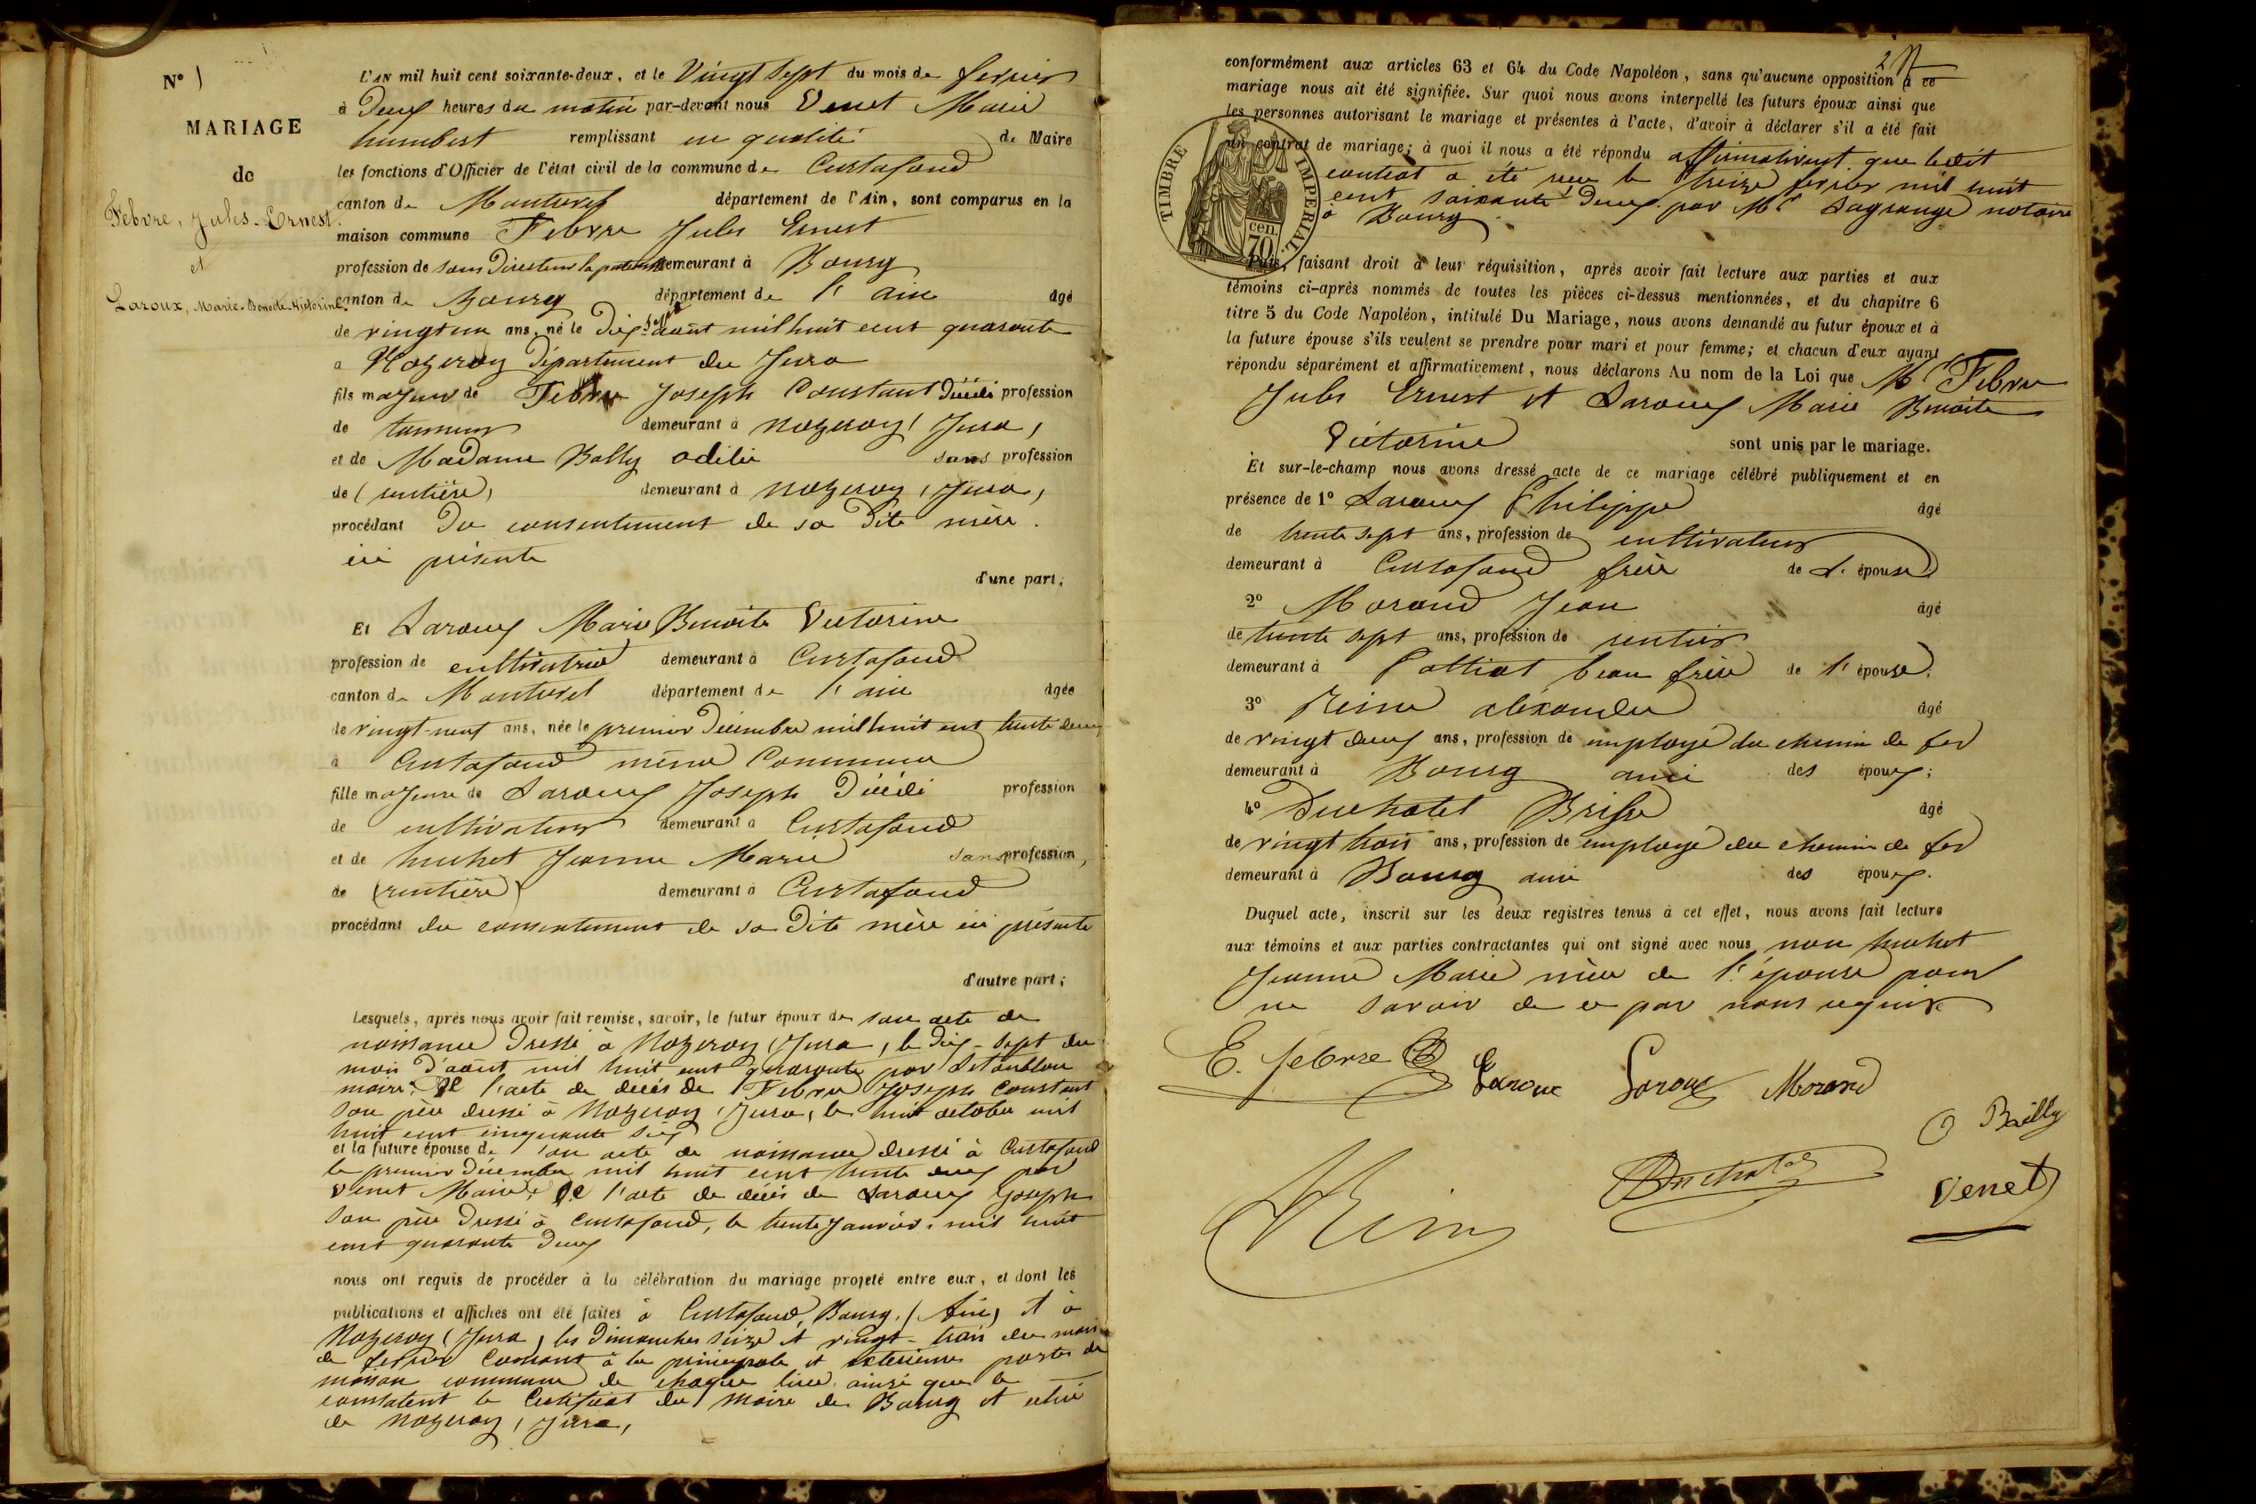 N° 1
MARIAGE
de
Febvre, Jules-Ernest.
et
Laroux, Marie-Benoite-Victorine.
L'AN mil huit cent soixante-deux, et le Vingt Sept du mois de fevrier
à Deux heures du matin par-devant nous Venet Marie
humbert remplissant en qualité de Maire
les fonctions d'Officier de l'état civil de la commune de Curtafond
canton de Montrevel département de l'Ain, sont comparus en la
maison commune Febvre Jules Ernest
profession de sous Directeur demeurant à Bourg
canton de Bourg département de l' ain âgé
de vingt un ans, né le Dix Sept août mil huit cent quarante
a Nozeroy Département du Jura
fils majeur de Febvre Joseph Constant Décédé profession
de tanneur demeurant à Nozeroy (Jura)
et de Madame Bailly odilie sans profession
de (rentière) demeurant à Nozeroy (Jura)
procédant Du consentement de sa Dite mère
ici présente
d'une part,
Et Laroux Marie Benoite Victorine
profession de cultivatrice demeurant à Curtafond
canton de Montrevel département de l' ain âgée
de vingt-neuf ans, née le premier Décembre mil huit cent trente deux
à Curtafond même Commune
fille majeure de Laroux Joseph Décédé profession
de cultivateur demeurant à Curtafond
et de huchet Jeanne Marie sans profession,
de (rentière) demeurant à Curtafond
procédant du consentement de sa Dite mère ici présente
d'autre part;
Lesquels, après nous avoir fait remise, savoir, le futur époux de son acte de
naissance Dressé à Nozeroy (Jura), le Dix-Sept du
mois D'août mil huit cent quarante par
maire. De l'acte de décès de Febvre Joseph Constant
son père dressé à Nozeroy (Jura), le huit octobre mil
huit cent cinquante six
et la future épouse de son acte de naissance dressé à Curtafond
le premier Décembre mil huit cent trente deux par
Venet Maire, De l'acte de décès de Laroux Joseph
son père Dressé à Curtafond, le trente Janvier mil huit
cent quarante Deux
nous ont requis de procéder à la célébration du mariage projeté entre eux, et dont les
publications et affiches ont été faites à Curtafond, Bourg, (Ain) et à
Nozeroy (Jura), les Dimanches seize et vingt-trois du mois
de fevrier Courant à la principale et exterieure porte de
maison commune de chaque lieu ainsi que le
constatent le Certificat du Maire de Bourg et celui
de Nozeroy (Jura)
2
conformément aux articles 63 et 64 du Code Napoléon, sans qu'aucune opposition à ce
mariage nous ait été signifiée. Sur quoi nous avons interpellé les futurs époux ainsi que
les personnes autorisant le mariage et présentes à l'acte, d'avoir à déclarer s'il a été fait
un contrat de mariage; à quoi il nous a été répondu affirmativement que ledit
contrat a été reçu le treize fevrier mil huit
cent soixante Deux par Me Lagrange notaire
à Bourg
TIMBRE IMPERIAL.
cen.
70
Puis, faisant droit à leur réquisition, après avoir fait lecture aux parties et aux
témoins ci-après nommés de toutes les pièces ci-dessus mentionnées, et du chapitre 6
titre 5 du Code Napoléon, intitulé Du Mariage, nous avons demandé au futur époux et à
la future épouse s'ils veulent se prendre pour mari et pour femme; et chacun d'eux ayant
répondu séparément et affirmativement, nous déclarons Au nom de la Loi que Mr Febvre
Jules Ernest et Laroux Marie Benoite
Victorine sont unis par le mariage.
Et sur-le-champ nous avons dressé acte de ce mariage célébré publiquement et en
présence de 1° Laroux Philippe âgé
de trente sept ans, profession de cultivateur
demeurant à Curtafond frère de L' épouse
2° Morand Jean âgé
de trente sept ans, profession de rentier
demeurant à Polliat beau frère de l' épouse.
3° Reine alexandre âgé
de vingt deux ans, profession de employé du chemin de fer
demeurant à Bourg ami des époux;
4° Duchatel Brisse âgé
de vingt trois ans, profession de employé du chemin de fer
demeurant à Bourg ami des époux.
Duquel acte, inscrit sur les deux registres tenus à cet effet, nous avons fait lecture
aux témoins et aux parties contractantes qui ont signé avec nous non huchet
Jeanne Marie mère de l' épouse pour
ne savoir de ce par nous requise
E. febvre Laroux Laroux Morand
O Bailly
Rein Duchatel Venet